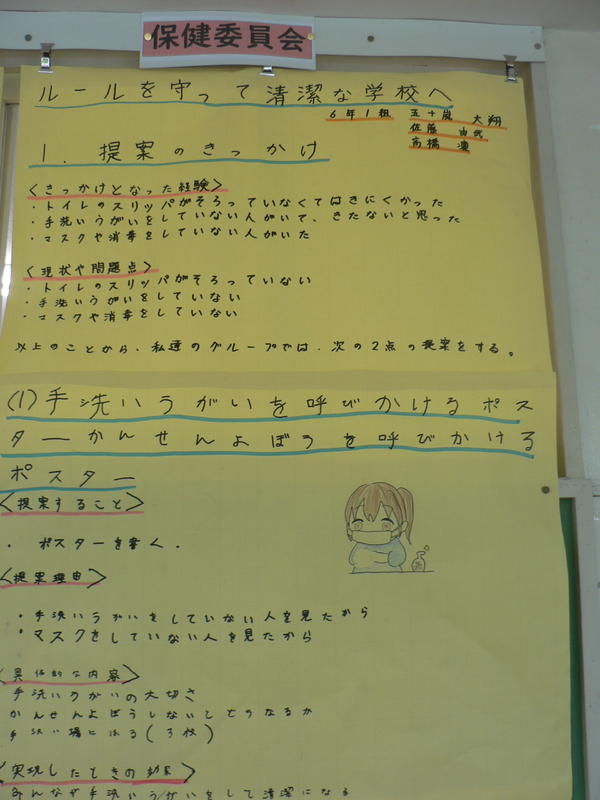 保健委員会
ルールを守って清潔な学校へ
6年1組 五十嵐 大翔
佐藤
高橋 凜
1. 提案のきっかけ
<きっかけとなった経験>
・トイレのスリッパがそろっていなくてはきにくかった
・手洗いうがいをしていない人がいて、きたないと思った
・マスクや消毒をしていない人がいた
<現状や問題点>
・トイレのスリッパがそろっていない
・手洗いうがいをしていない
・マスクや消毒をしていない
以上のことから、私達のグループでは、次の2点の提案をする。
(1)手洗いうがいを呼びかけるポス
ターかんせんよぼうを呼びかける
ポスター
<提案すること>
・ポスターを書く.
<提案理由>
・手洗いうがいをしていない人を見たから
・マスクをしていない人を見たから
<具体的な内容>
手洗いうがいの大切さ
かんせんよぼうしないとどうなるか
手洗い場にはる(3枚)
<実現したときの効果>
みんなが手洗いうがいをして清潔になる